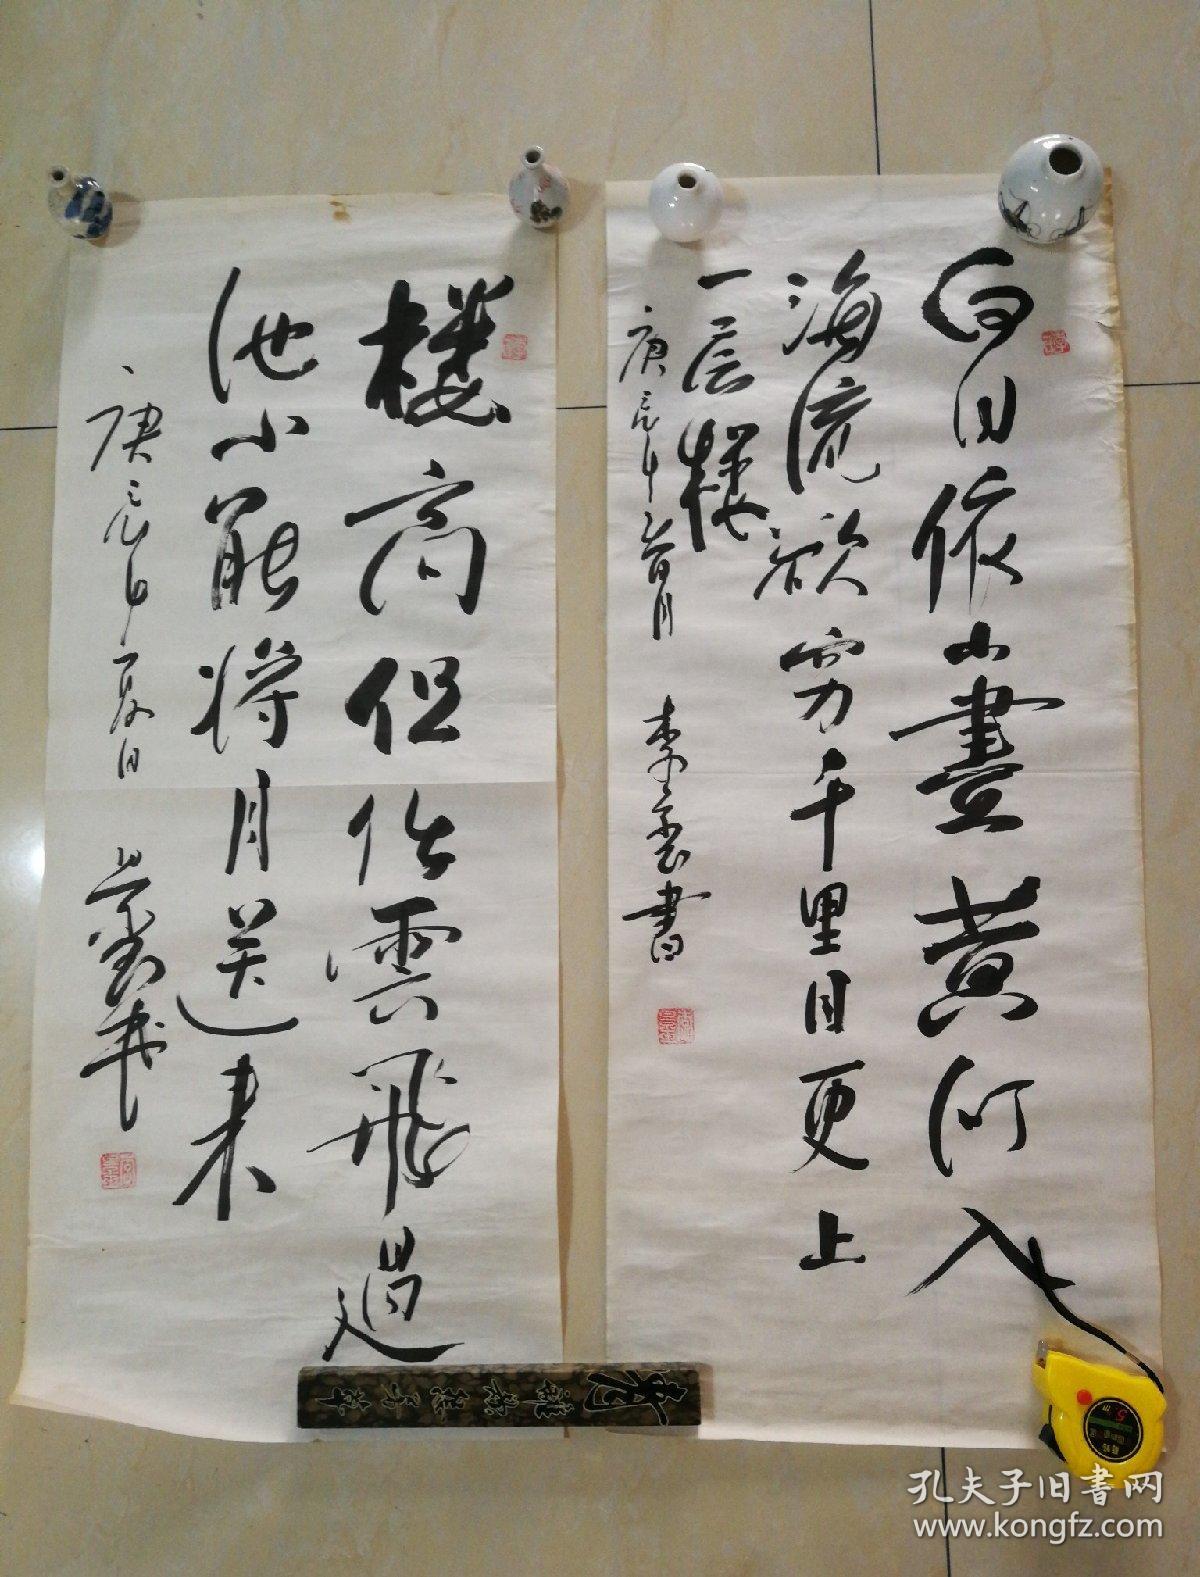 白日依山盡黄河入
海流欲穷千里目更上
一层楼
庚辰年春月 李
書
楼高但任雲飛過
池小能将月送来
庚辰年夏日
孔夫子旧书网
www.kongfz.com